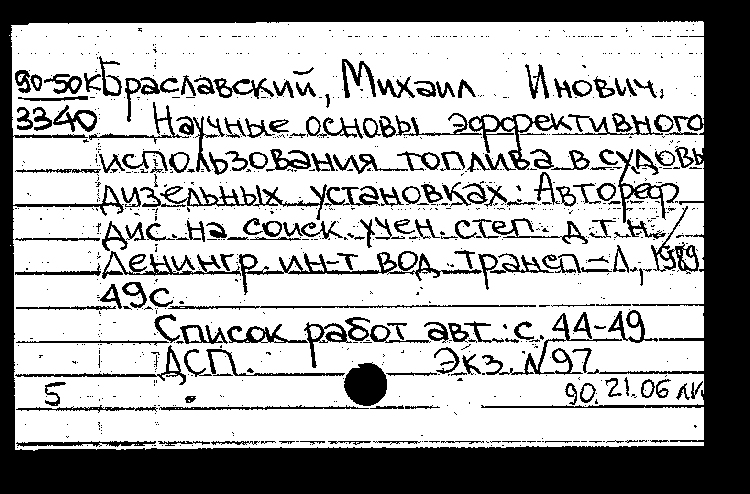 90-50к Браславский, Михаил Инович.
3340 Научные основы эффективного
использования топлива в судовы
дизельных установках: Автореф.
дис. на соиск. учен. степ. д.т.н./
Ленингр. ин-т вод. трансп. – Л., 1989.
49с.
Список работ авт.: с. 44-49
ДСП. Экз. N 97.
5 90.21.06